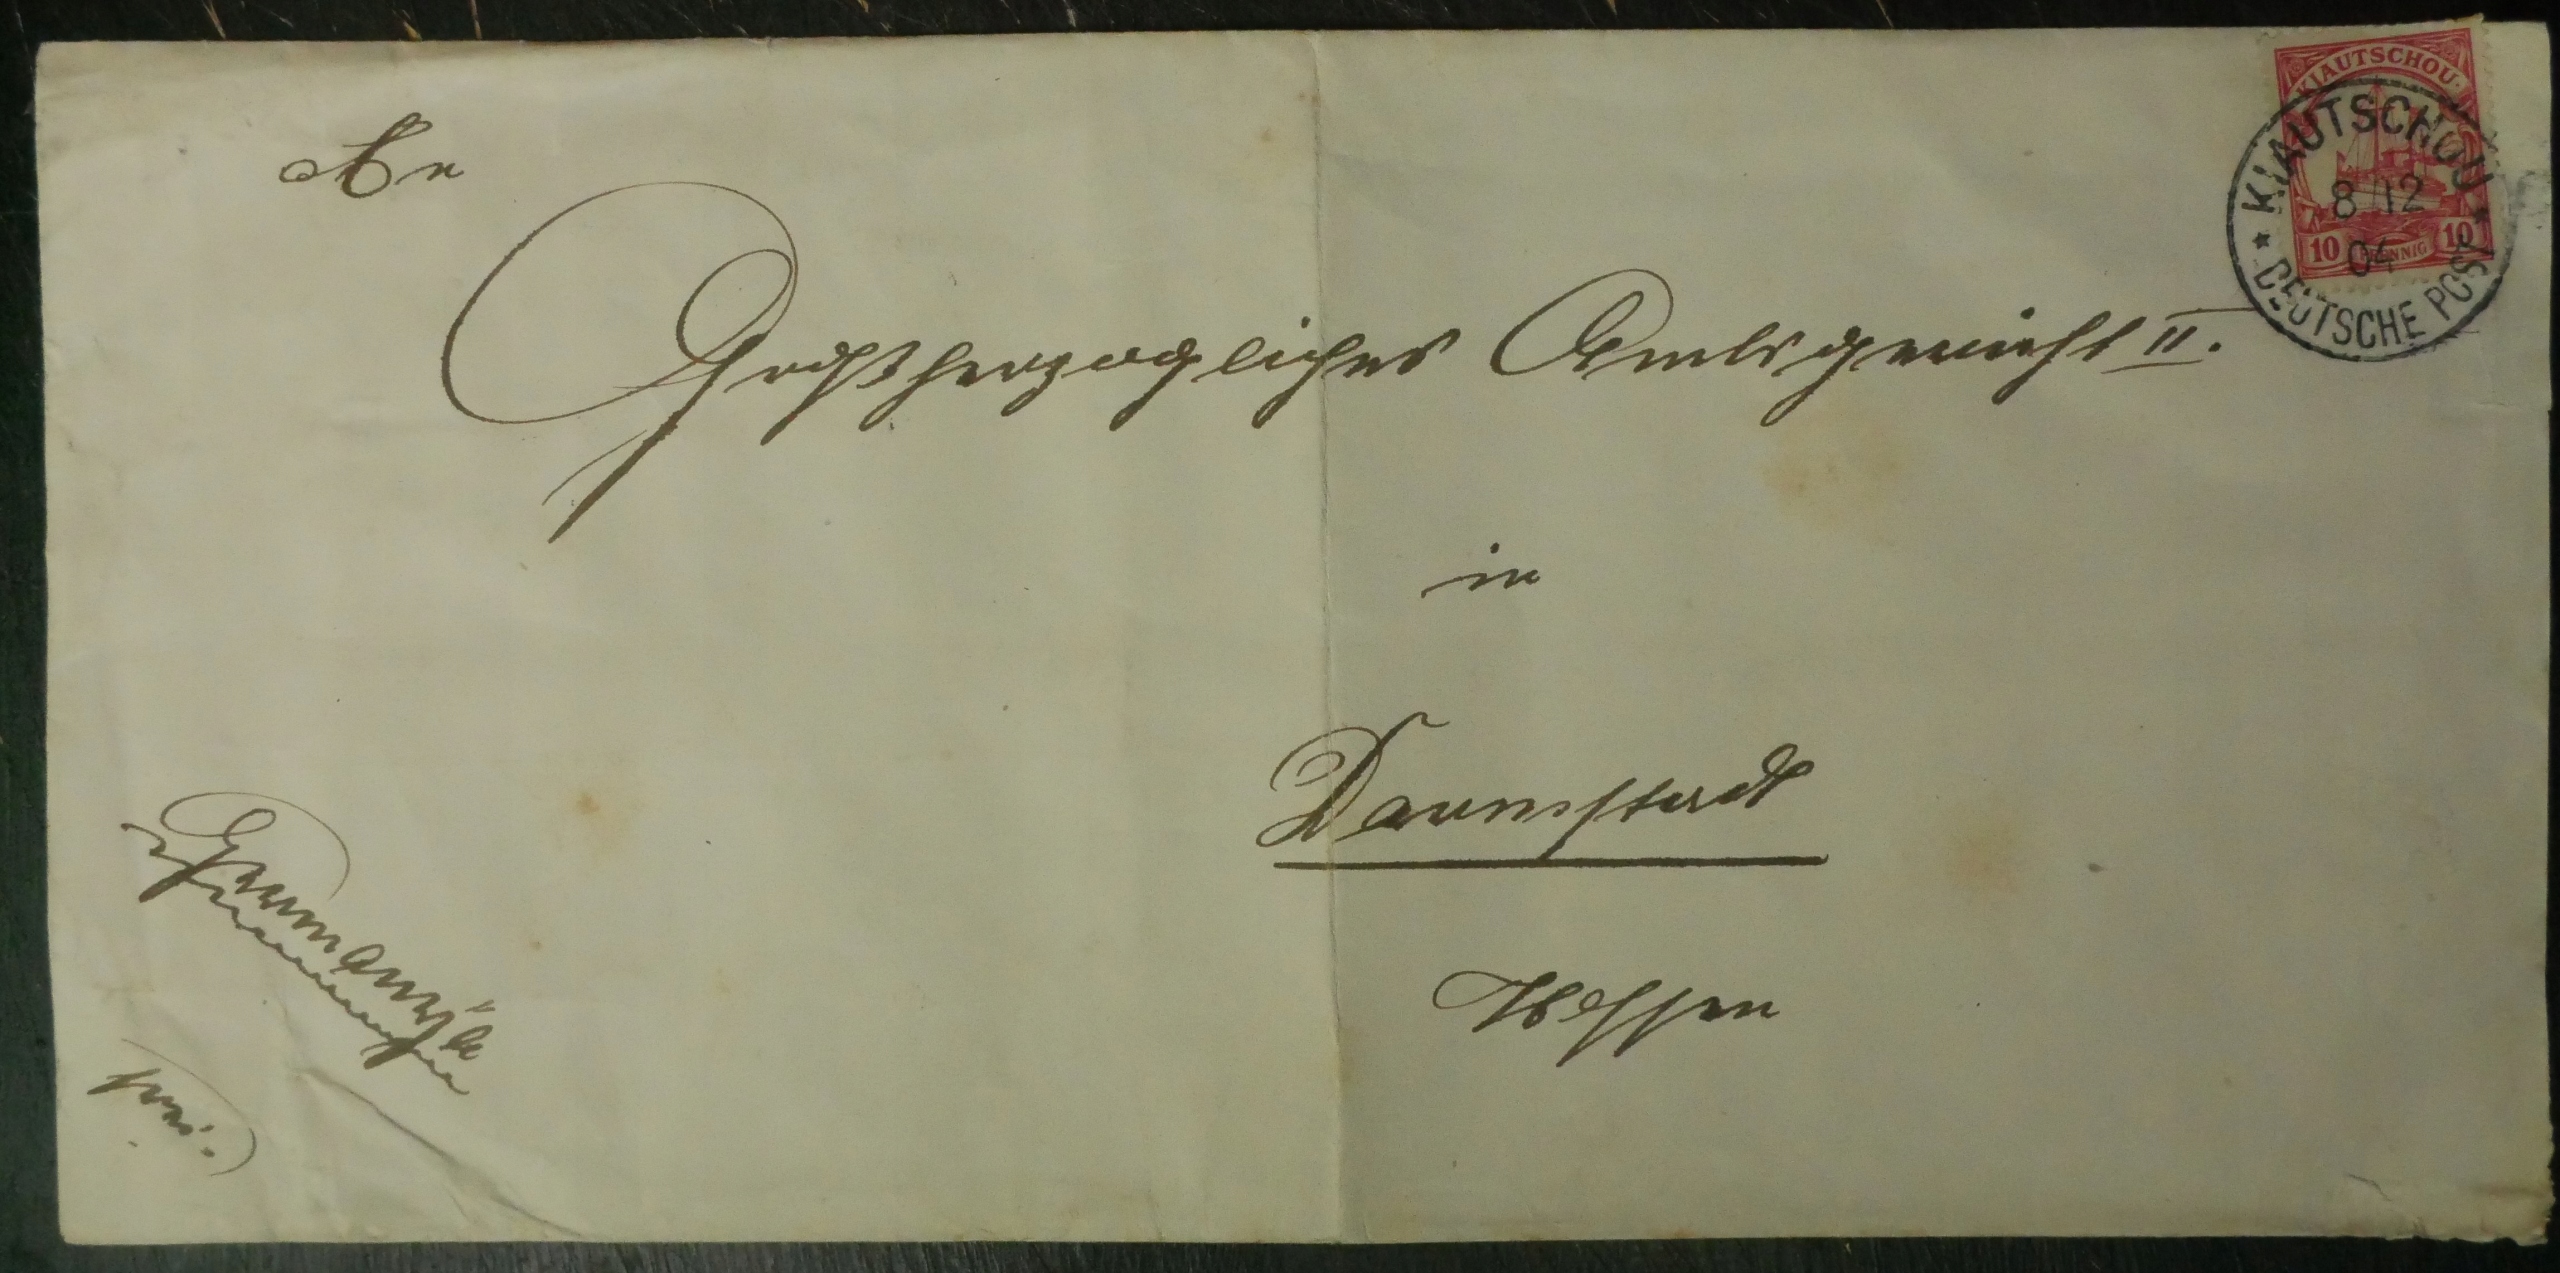 KIAUTSCHOU
10 PFENNIG 10
KIAUTSCHOU
8/12
04
DEUTSCHE POST
An
Großherzogliches Amtsgericht II.
in
Darmstadt
Hessen
frei.